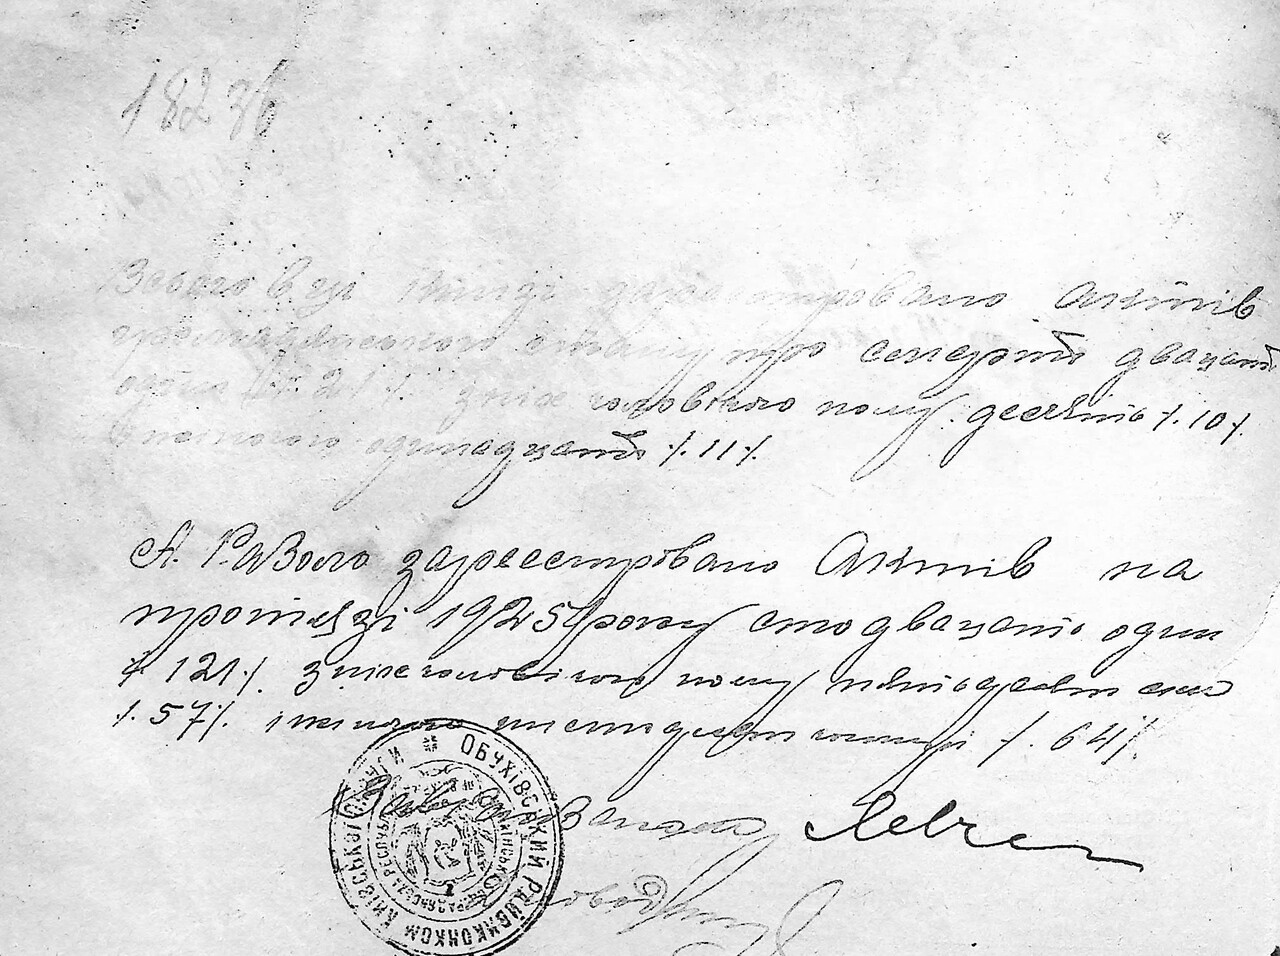 18236
Всього в ції книзі зареєстровано актів
громадянського стану про смерть двадцять
один /.21/. з них чоловічого полу десять /.10/.
жіночого одинадцять /.11/.
А Равсого зареєстровано Актів на
протязі 1925 року сто двацать один
/.121/. з них чоловічого полу пятьдесят сім
/.57/. жіночого шістдесят чотирі /.64/.
ОБУХІВСЬКИЙ РАЙВИКОНКОМ КИЇВСЬКОЇ ОКРУГИ